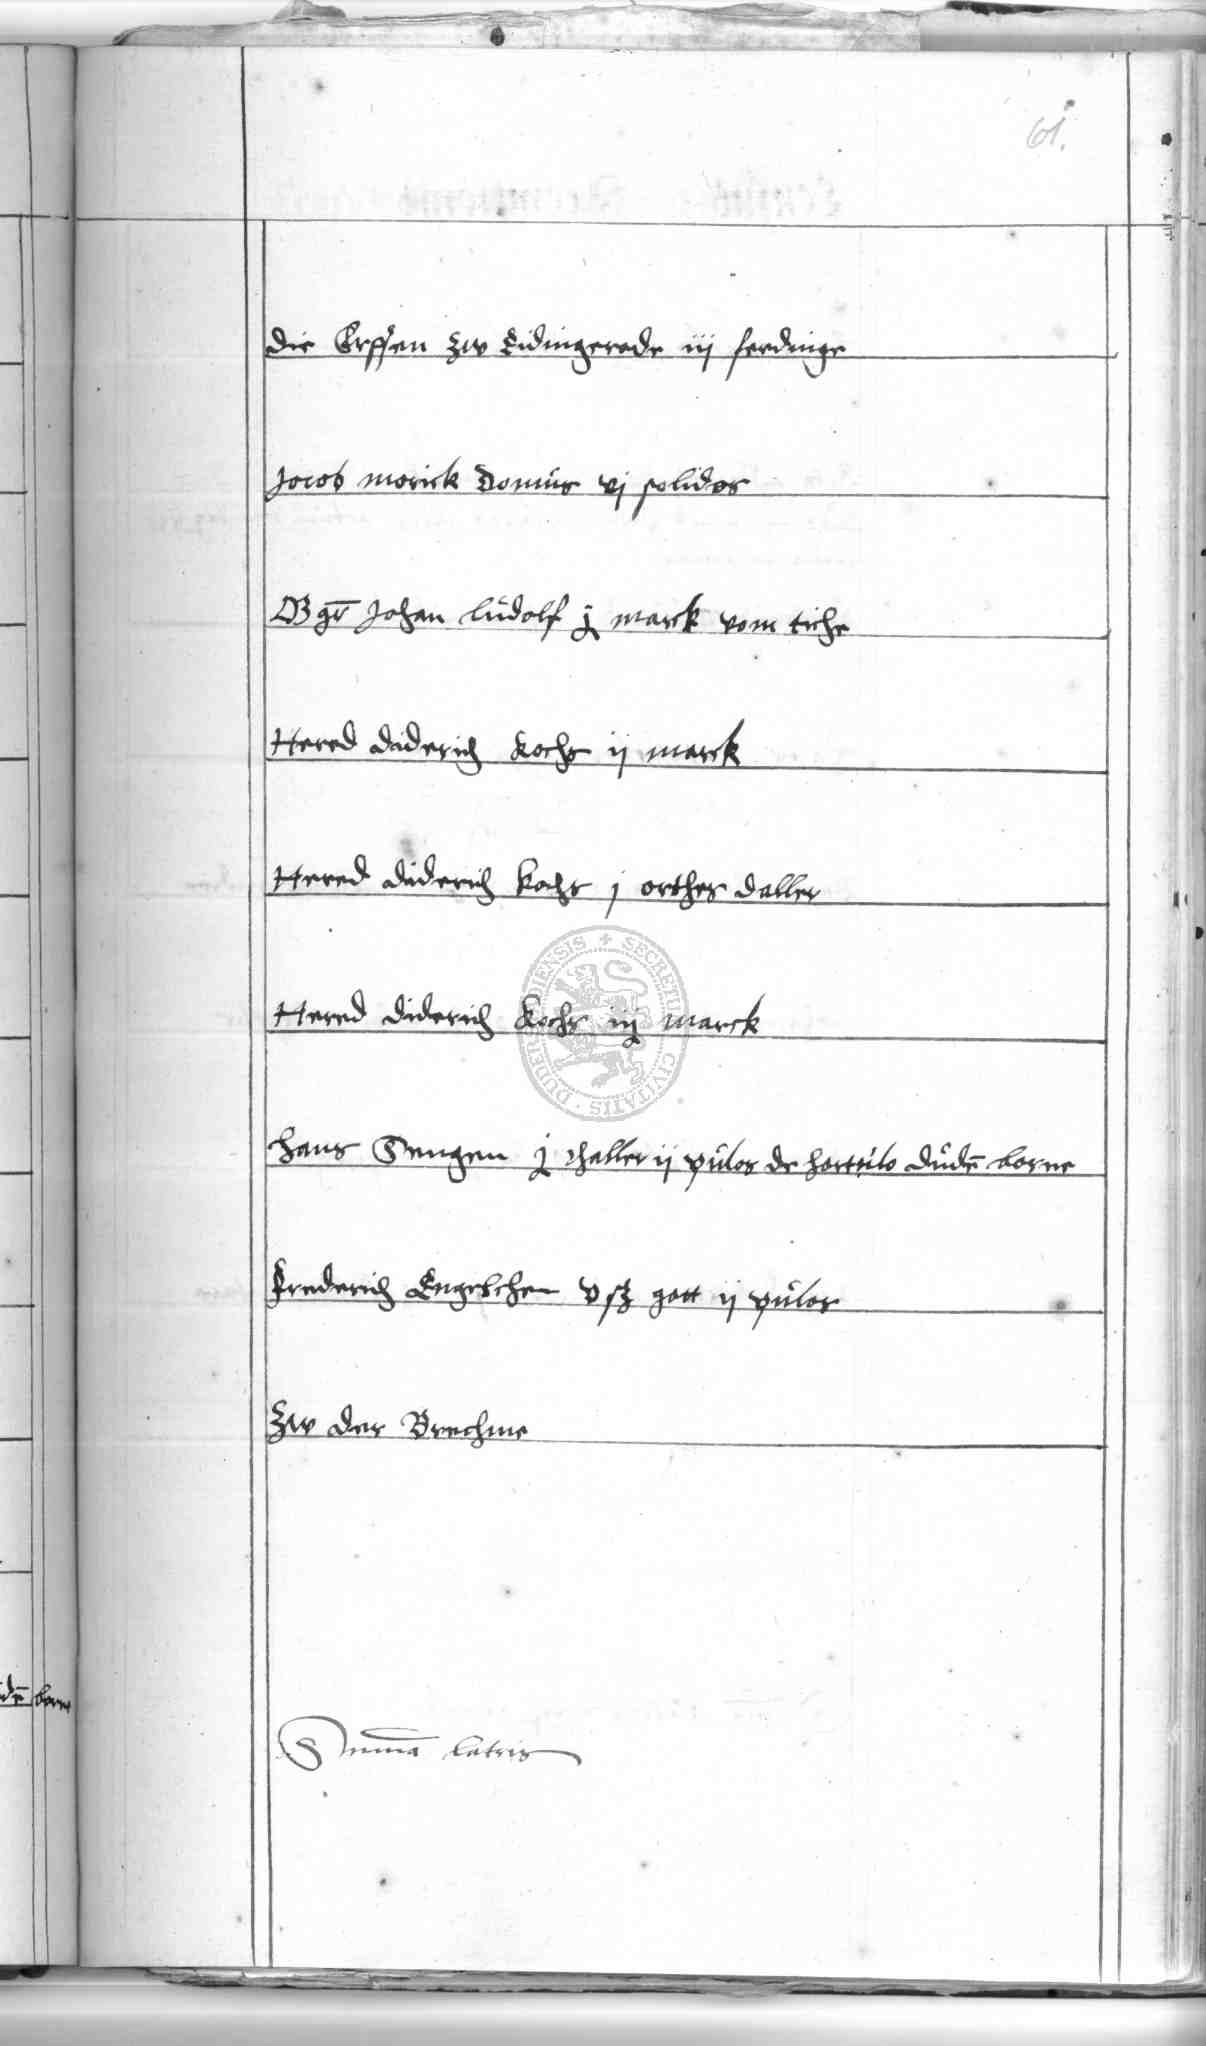 61.
Die Erffen zw Tidingerode iij ferdinge
Jocob morick Domus vj solidos
Bgr̄ Johan ludolf j marck vom tiche
Hered diderich kochs ij marck
Hered diderich kochs j orthes daller
Hered diderich kochs iij marck
Hans Sengen j thaller ij pulos de hortulo dudē borne
Frederich Engelchen vsz gott ij pulos
Zw der Brechme
Summa lateris
dē borne
SECRETU CIVITATIS DUDERSTADIENSIS